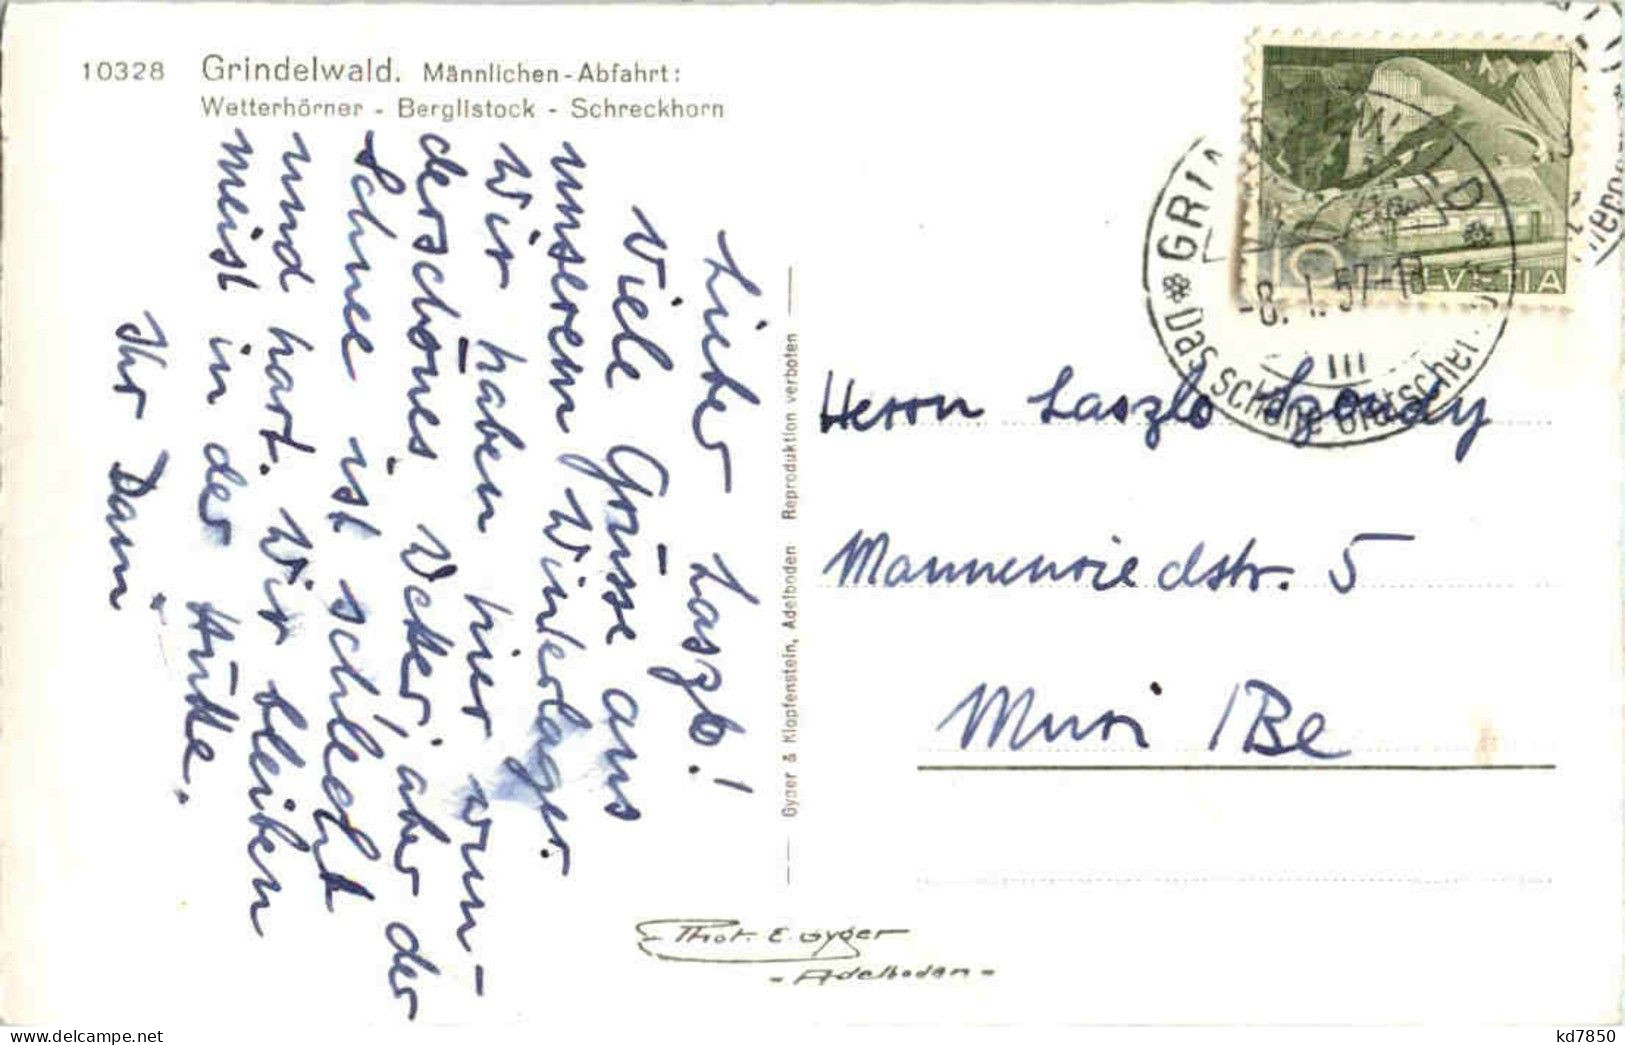 10328 Grindelwald. Männlichen-Abfahrt:
Wetterhörner - Berglistock - Schreckhorn
Lieber Laszlo!
Viele Grüsse aus
unserem Winterlager.
Wir haben hier wun-
derschönes Wetter, aber der
Schnee ist schlecht
und hart. Wir bleiben
meist in der Hütte.
Ihr Dam
Gyger & Klopfenstein, Adelboden Reproduktion verboten
HELVETIA
10
-8. 1. 57-18
III
Das schöne Gletscher
Herrn Laszlo Szondy
Mannenriedstr. 5
Muri / Be
Phot. E. Gyger
- Adelboden -
kd7850